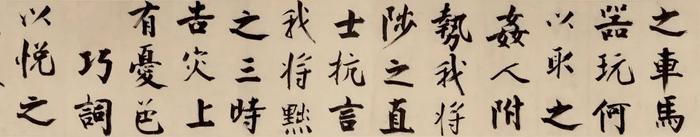 之車馬
器玩何
以取之
姦人附
勢我将
陟之直
士抗言
我将黜
之三時
告災上
有憂色
巧詞
以悦之